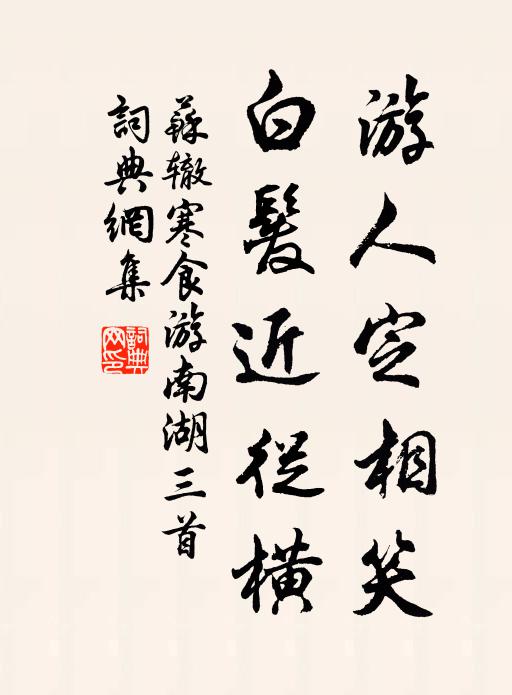 游人定相笑
白髮近從橫
蘇辙寒食游南湖三首
詞典網集
詞典網印